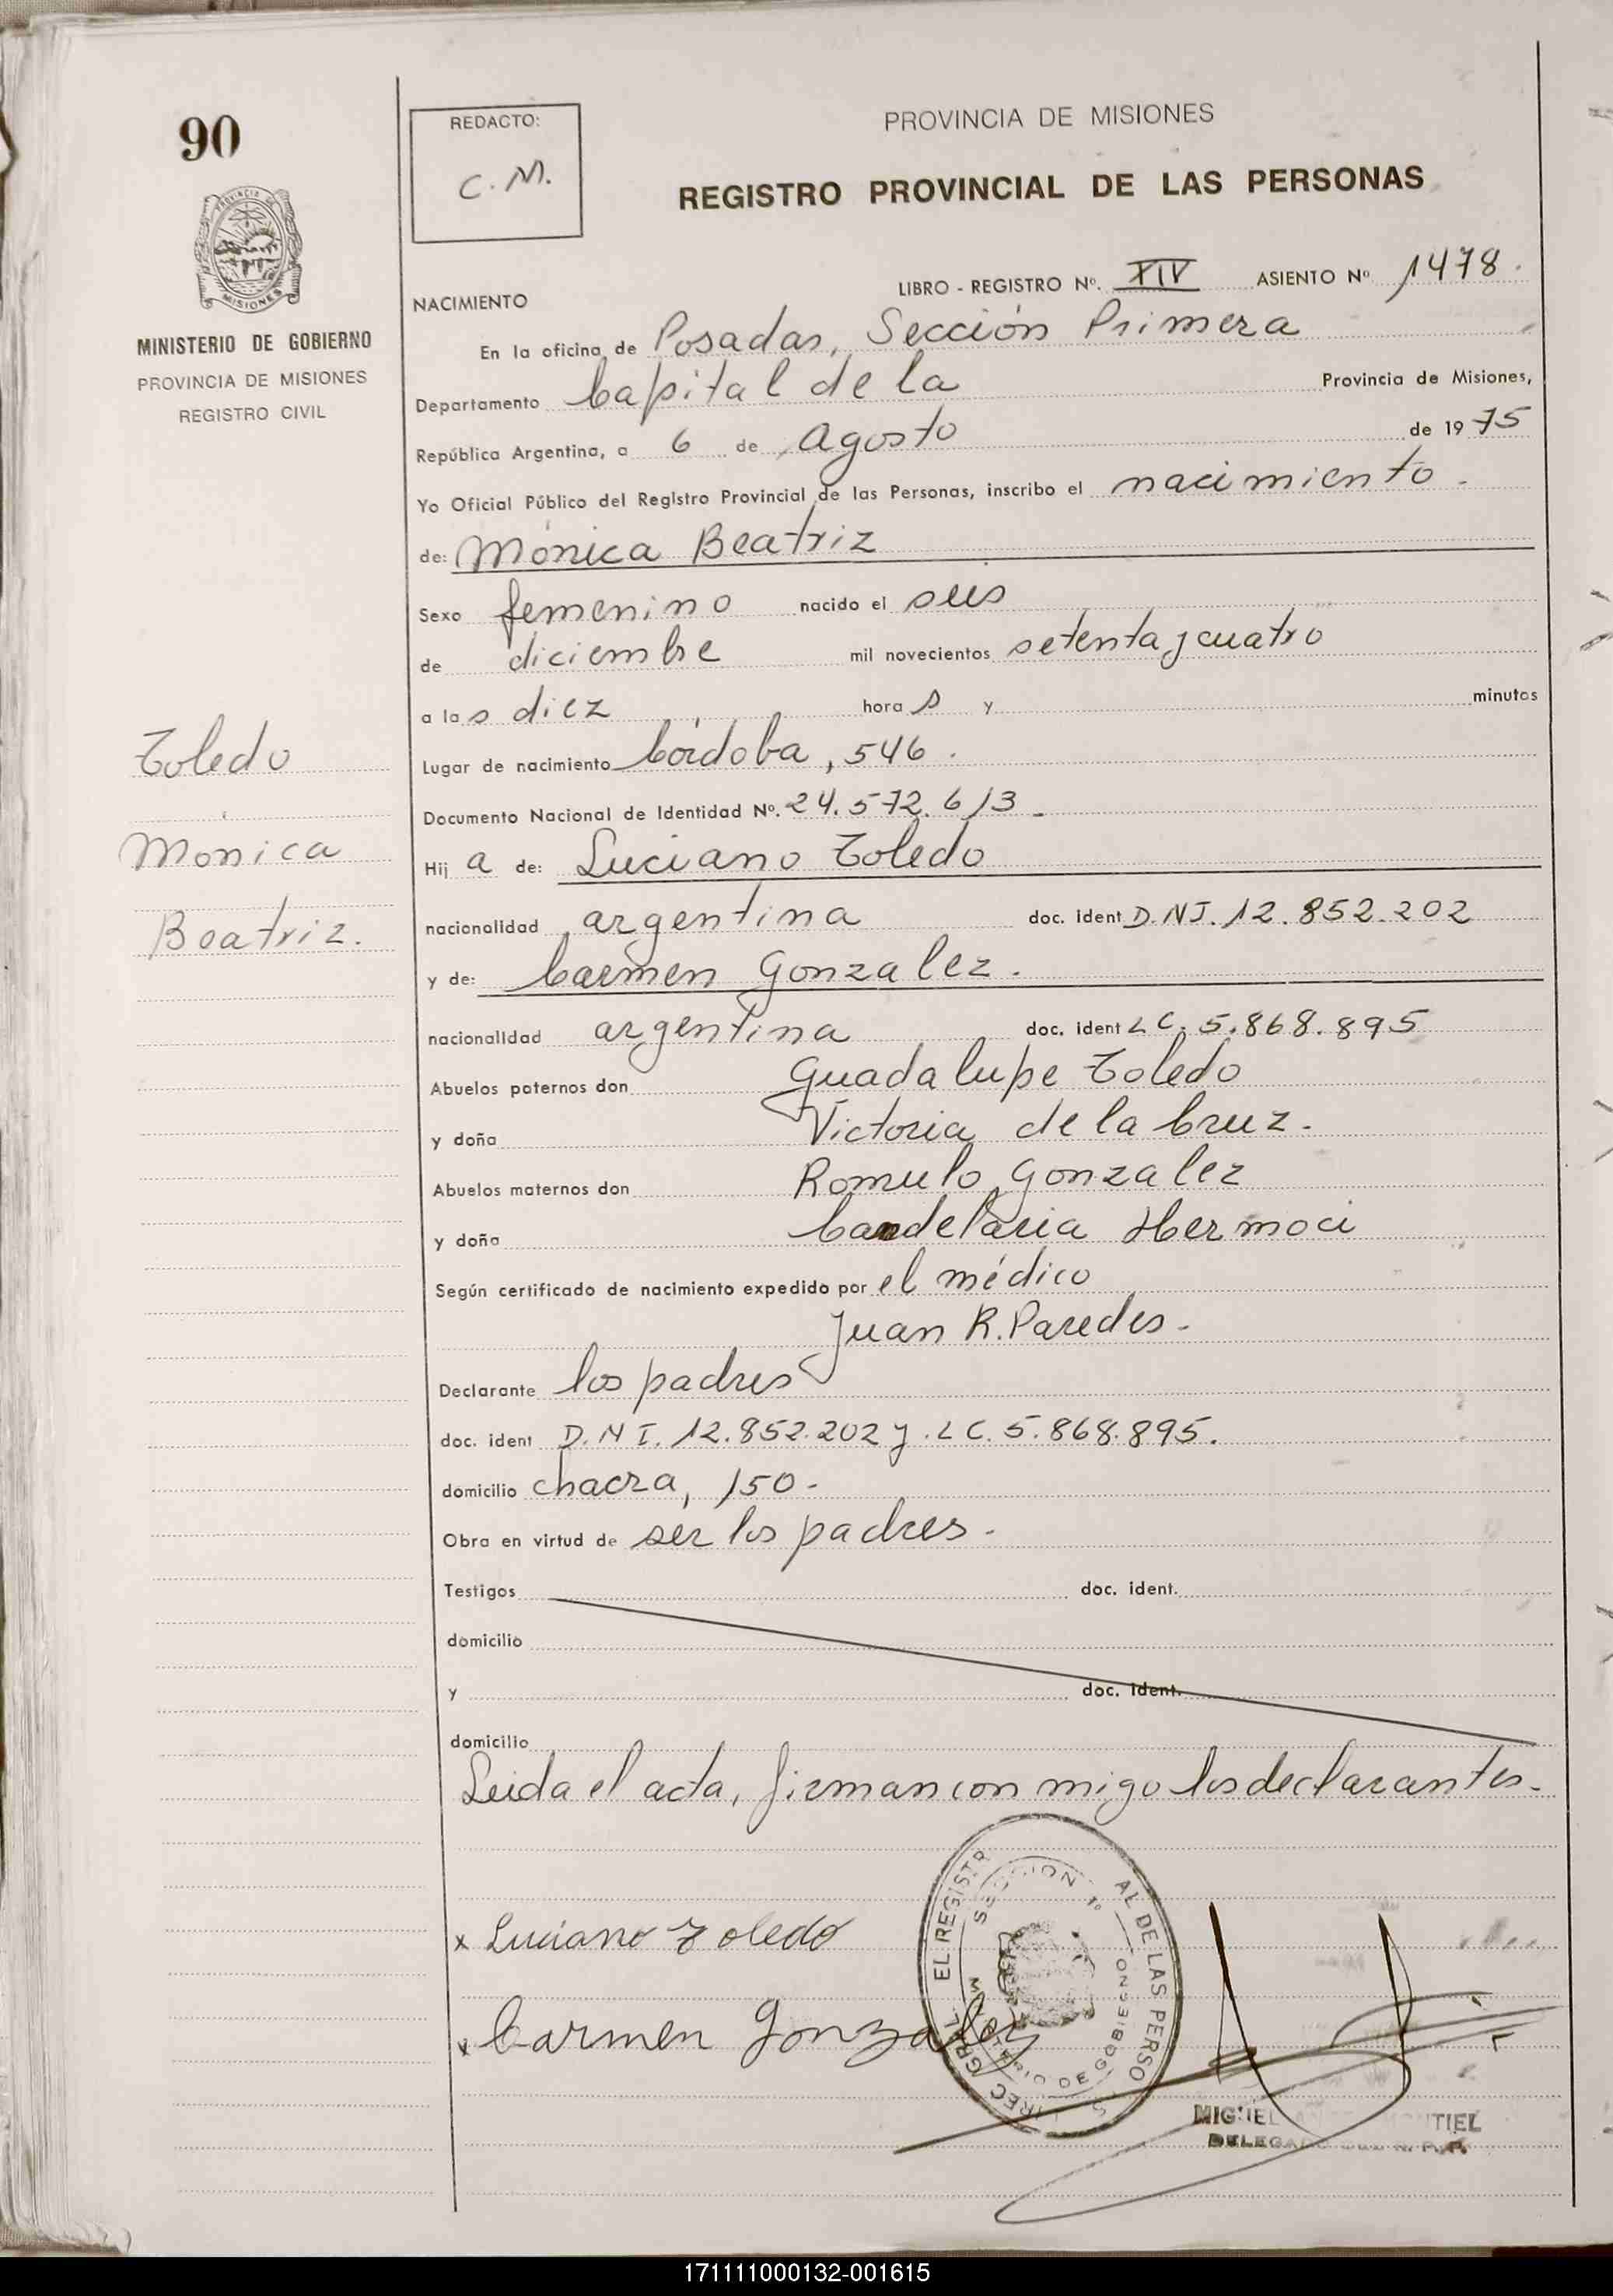 90
PROVINCIA DE MISIONES
MINISTERIO DE GOBIERNO
PROVINCIA DE MISIONES
REGISTRO CIVIL
Toledo
Monica
Beatriz.
REDACTO:
C.M.
PROVINCIA DE MISIONES
REGISTRO PROVINCIAL DE LAS PERSONAS
LIBRO - REGISTRO Nº. XIV ASIENTO Nº 1478.
NACIMIENTO
En la oficina de Posadas, Sección Primera
Departamento Capital de la Provincia de Misiones,
República Argentina, a 6 de Agosto de 1975
Yo Oficial Público del Registro Provincial de las Personas, inscribo el nacimiento.
de: Mónica Beatriz
Sexo femenino nacido el seis
de diciembre mil novecientos setenta y cuatro
a las diez horas y minutos
Lugar de nacimiento Córdoba, 546.
Documento Nacional de Identidad Nº. 24.572.613.-
Hija de: Luciano Toledo
nacionalidad argentina doc. ident D.NI. 12.852.202
y de: Carmen Gonzalez.
nacionalidad argentina doc. ident LC. 5.868.895
Abuelos paternos don Guadalupe Toledo
y doña Victoria de la Cruz.
Abuelos maternos don Romulo Gonzalez
y doña Candelaria Hermoci
Según certificado de nacimiento expedido por el médico
Juan R. Paredes.-
Declarante los padres
doc. ident D.NI. 12.852.202 y .LC. 5.868.895.
domicilio chacra, 150.-
Obra en virtud de ser los padres.-
Testigos doc. ident.
domicilio
y doc. ident.
domicilio
Leida el acta, firman con migo los declarantes.-
x Luciano Toledo
x Carmen Gonzalez
EL REGISTR AL DE LAS PERSO
SECCION 1º
DE GOBIERNO
MIGUEL TIEL
DELEGADO DEL R. P. P.
171111000132-001615